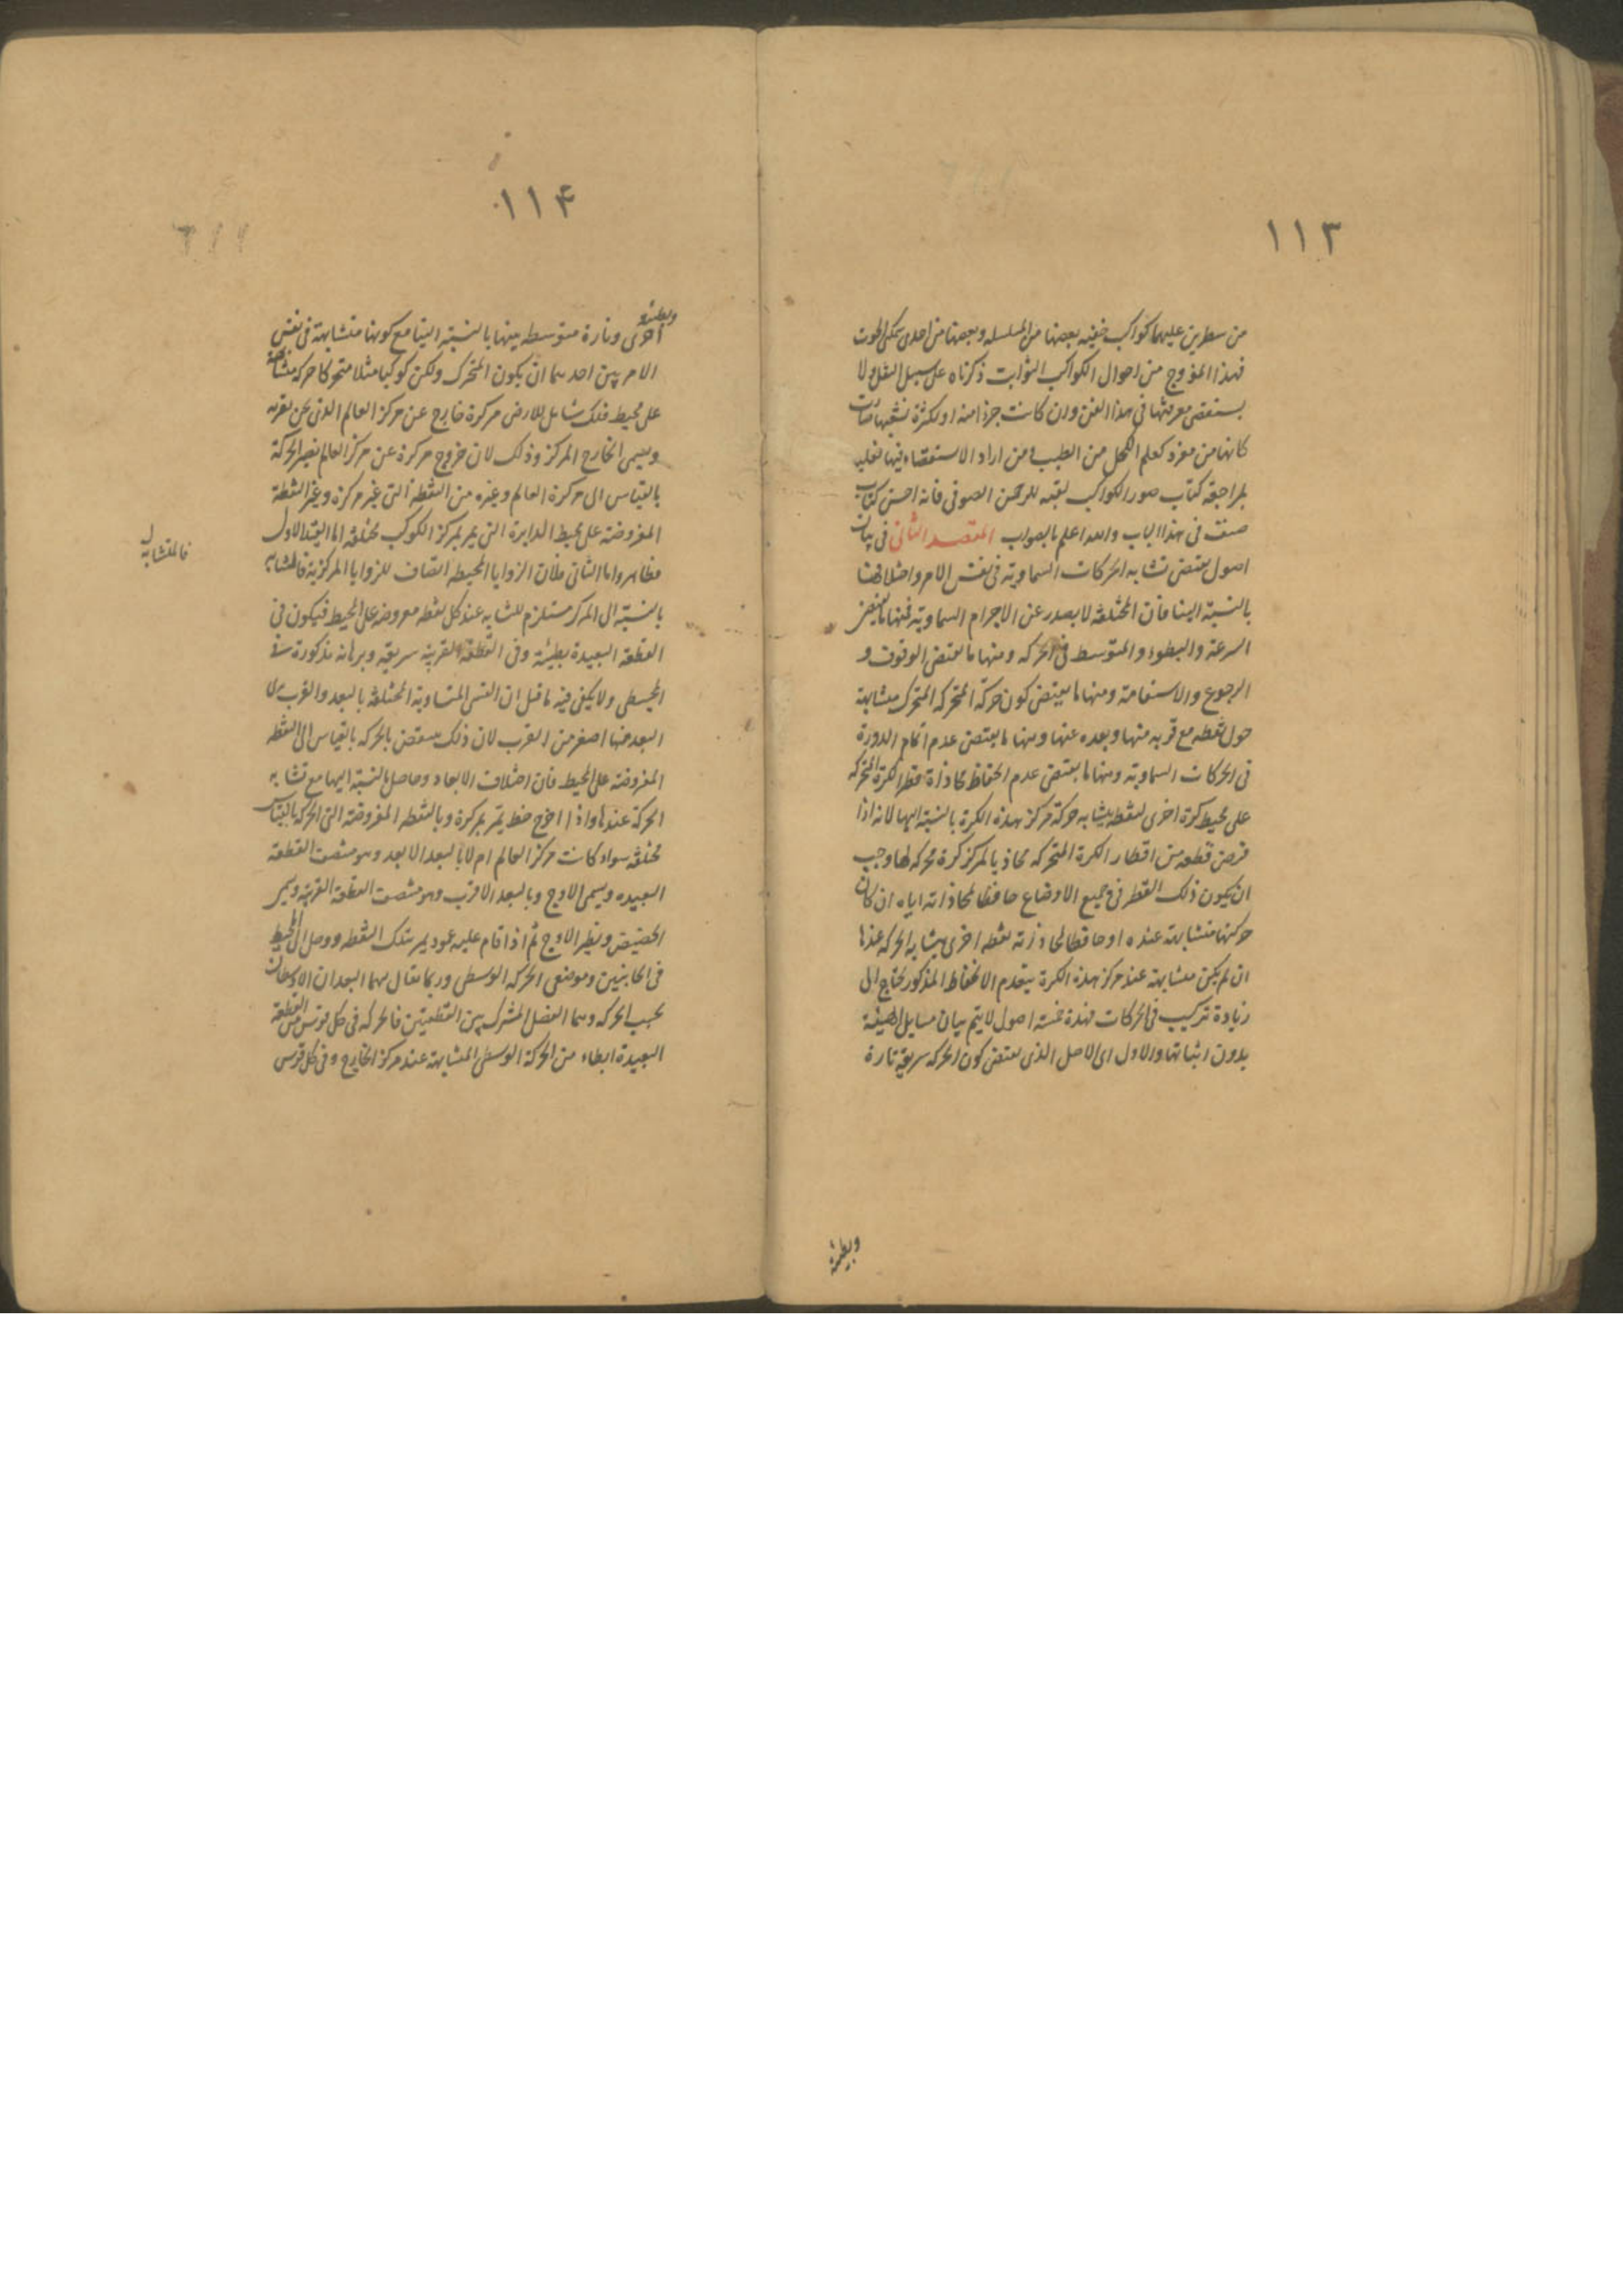 ١١٣
من سطرين عليهما كواكب خفيه بعضها من المسلسله وبعضها من احدى سمكى الحوت
فهذا المؤوج من احوال الكواكب الثوابت ذكرناه على سبيل النقل ولا
يستقصى معرفتها فى هذا الفن وان كانت جزءا منه او لكثرة تشعبها صارت
كانها من مفرد كعلم الكحل من الطب ومن اراد الاستقصاء فيها فعليه
بمراجعة كتاب صور الكواكب للرحمن الصوفى فانه احسن كتاب
صنف فى هذا الباب والله اعلم بالصواب المقصد الثانى فى بيان
اصول يقتضى تشابه الحركات السماوية فى نفس الامر واختلافها
بالنسبة الينا فان المختلفة لا يصدر عن الاجرام السماوية فمنها ما يقتضى
السرعة والبطوء والمتوسط فى الحركه ومنها ما يقتضى الوقوف و
الرجوع والاستقامة ومنها ما يقتضى كون حركة المتحركه المتحرك متشابهة
حول نقطه مع قربه منها وبعده عنها ومنها ما يقتضى عدم اتمام الدورة
فى الحركات السماوية ومنها ما يقتضى عدم انحفاظ محاذاة قطر الكرة المتحركه
على محيط كرة اخرى لنقطه يتشابه حركة مركز هذه الكرة بالنسبة اليها لانه اذا
فرض قطعه من اقطار الكرة المتحركه محاذيا لمركز كرة محركه لها وجب
ان يكون ذلك القطر فى جميع الاوضاع حافظا لمحاذاته اياه ان كان
حركتها متشابهة عنده او حافظا لمحاذاته نقطه اخرى يتشابه الحركه عندها
ان لم يكن متشابهة عند مركز هذه الكرة فعدم الانحفاظ المذكور يحتاج الى
زيادة تركيب فى الحركات فهذه خمسة اصول لا يتم بيان مسايل الهيئة
بدون اثباتها والاول اى الاصل الذى يقتضى كون الحركه سريعة تارة
وبطيئة
١١۴
وبطيئة
اخرى وتارة متوسطه بينها بالنسبة الينا مع كونها متشابهة فى نفس
الامر بين احدهما ان يكون المتحرك وليكن كوكبا مثلا متحركا حركه متشابهة
على محيط فلك شامل للارض مركزه خارج عن مركز العالم الذى نحن بقربه
ويسمى الخارج المركز وذلك لان خروج مركزه عن مركز العالم يصير الحركة
بالقياس الى مركز العالم وغيره من النقطة التى غير مركزه وغير النقطة
المفروضة على محيط الدايرة التى يمر بمركز الكوكب مختلفة اما القيد الاول
فظاهر واما الثانى فلان الزوايا المحيطه انصاف للزوايا المركزية فالمتشابه
فالمتشابه ل
بالنسبة الى المركز مستلزم للتشابه عند كل نقطه مفروضه على المحيط فيكون فى
القطعة البعيدة بطيئة وفى القطعة القريبه سريعه وبرهانه مذكورة فى
المجسطى ولا يكفى فيه ما قيل ان القسى المتساوية المختلفة بالبعد والقرب يرى
البعد منها اصغر من القرب لان ذلك ينتقض بالحركه بالقياس الى النقطه
المفروضة على المحيط فان اختلاف الابعاد حاصل بالنسبة اليها مع تشابه
الحركة عندها واذا اخرج خط يمر بمركزه وبالنقطه المفروضة التى الحركه بالقياس
مختلفه سواء كانت مركز العالم ام لا بالبعد الابعد وهو منتصف القطعة
البعيده ويسمى الاوج وبالبعد الاقرب وهو منتصف القطعة القريبة ويسمى
الحضيض ونظير الاوج ثم اذا قام عليه عمود يمر بتلك النقطه ووصل الى المحيط
فى الجانبين وموضعى الحركه الوسطى وربما يقال لهما البعدان الاوسطان
بحسب الحركه وهما الفصل المشترك بين القطعتين فالحركه فى كل قوس من القطعة
البعيدة ابطاء من الحركة الوسطى المتشابهة عند مركز الخارج وفى كل قوس